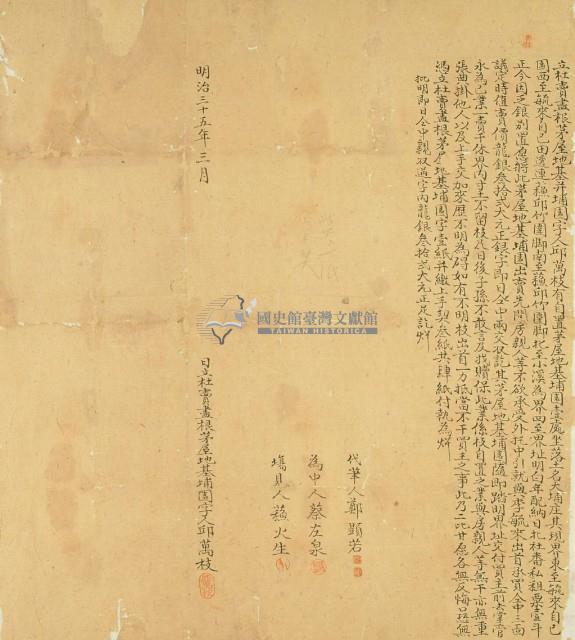 立杜賣盡根茅屋地基并埔園字人邱萬枝有自置茅屋地基埔園壹處坐落土名大埔庄其現界東至毓來自己
園西至毓來自己田透連穗邱竹圍脚南至穗邱竹圍脚北至小溪為界四至界址明白年配納日北杜番私租粟壹斗
正今因乏銀別置愿將此茅屋地基埔園出賣先問房親人等不欲承受外托中引就與李毓來出首承買仝中三面
議定時值賣價龍銀叁拾弍大元正銀字即日仝中兩交收訖其茅屋地基埔園隨即踏明界址交付買主前去掌管
永為己業一賣千休界內寸土不留枝及日後子孫不敢言及找贖保此業係枝自置之業與房親人等無干亦無重
張典掛他人以及上手交加來歷不明為碍如有不明枝出首一力抵當不干買主之事此乃二比甘愿各無反悔口恐無
憑立杜賣盡根茅屋地基埔園字壹紙并繳上手契叁紙共肆紙付執為炤
批明即日仝中親收過字內龍銀叁拾弍大元正足訖炤
代筆人鄭顯若
為中人蔡左泉
塲見人蘓火生
明治三十五年三月
日立杜賣盡根茅屋地基埔園字人邱萬枝
國史館臺灣文獻館
TAIWAN HISTORICA